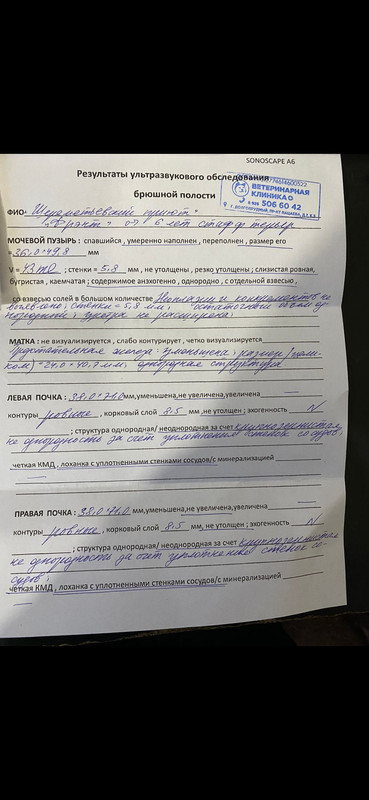 SONOSCAPE A6
Результаты ультразвукового обследования
брюшной полости
ВЕТЕРИНАРНАЯ
КЛИНИКА
506 60 42
ФИО "Шереметьевский приют"
"Франт" 6 лет стафф терьер
МОЧЕВОЙ ПУЗЫРЬ : спавшийся , умеренно наполнен , переполнен , размер его
= 36,0 × 49,8 мм
V = 43 ml ; стенки = 5,8 мм , не утолщены , резко утолщены ; слизистая ровная,
бугристая , каемчатая ; содержимое анэхогенно , однородно , с отдельной взвесью ,
со взвесью солей в большом количестве Неоплазии и конкрементов не
выявлено; стенки = 5,8 мм; остаточный объем
уретра не расширена;
МАТКА : не визуализируется , слабо контурирует , четко визуализируется
Предстательная железа: уменьшена; размер
= 24,0 × 40,7 мм; однородная структура
ЛЕВАЯ ПОЧКА : 38,0 × 71,0 мм,уменьшена,не увеличена,увеличена
контуры ровные , корковый слой 8,5 мм ,не утолщен ; эхогенность N
; структура однородная/ неоднородная за счет крупнозернистая,
не однородность за счет уплотнения стенок сосудов;
четкая КМД , лоханка с уплотненными стенками сосудов/с минерализацией
ПРАВАЯ ПОЧКА : 38,0 × 71,0 мм,уменьшена,не увеличена,увеличена
контуры ровные , корковый слой 8,5 мм, не утолщен ; эхогенность N
; структура однородная/ неоднородная за счет крупнозернистая
не однородность за счет уплотнения стенок со-
судов;
четкая КМД , лоханка с уплотненными стенками сосудов/с минерализацией